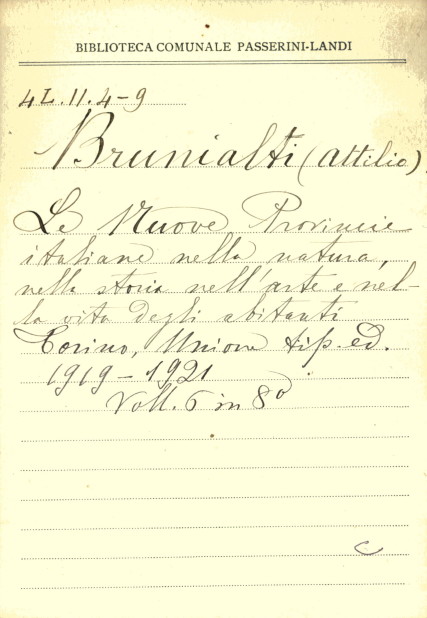 BIBLIOTECA COMUNALE PASSERINI-LANDI
4L.11.4-9
Brunialti (Attilio)
Le Nuove Provincie
italiane nella natura,
nella storia nell'arte e nel-
la vita degli abitanti
Torino, Unione tip. ed.
1919-1921
Voll. 6 in 8º
C